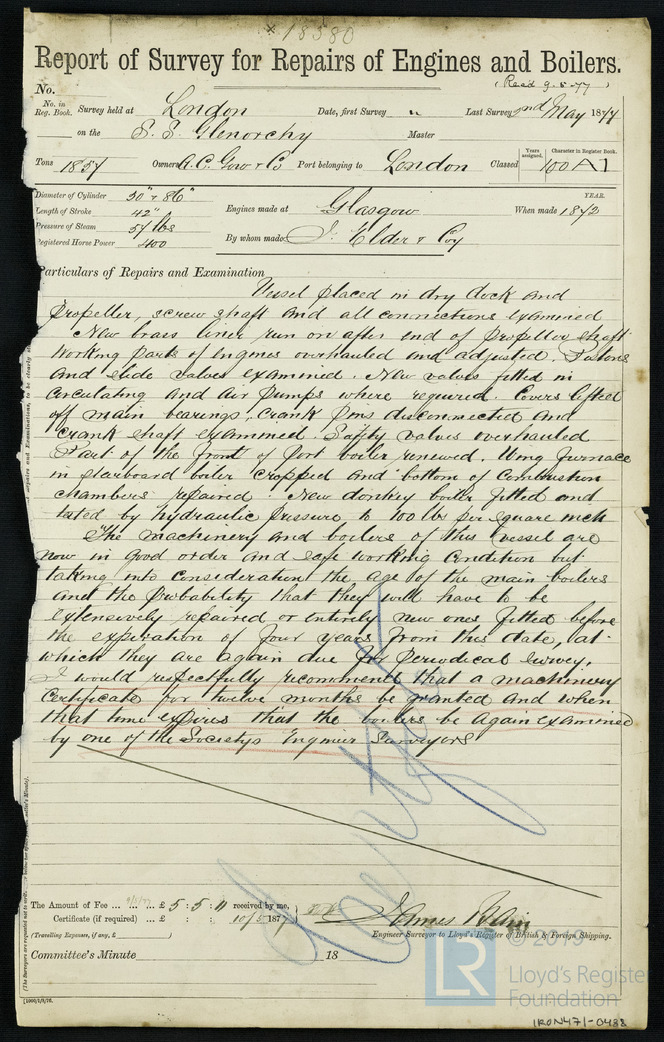 * 18580
Report of Survey for Repairs of Engines and Boilers.
(Recd 9-5-77)
No.
No. in Reg. Book. Survey held at London Date, first Survey " Last Survey 2nd May 1877
on the S.S. Glenorchy Master
Tons 1857 Owners A. C. Gow & Co Port belonging to London Classed Years assigned. Character in Register Book. 100 A1
Diameter of Cylinder 50" & 86"
Length of Stroke 42" Engines made at Glasgow YEAR. When made 1872
Pressure of Steam 57 lbs
Registered Horse Power 400 By whom made J. Elder & Coy
Particulars of Repairs and Examination
Vessel placed in dry dock and
propeller, screw shaft and all connections examined
New brass liner run on after end of propeller shaft
Working parts of engines overhauled and adjusted. Pistons
and slide valves examined. New valves fitted in
circulating and air pumps where required. Covers lifted
off main bearings, crank pins disconnected and
crank shaft examined. Safety valves overhauled
Part of the front of port boiler renewed. Wing furnace
in starboard boiler cropped and bottom of combustion
chambers repaired. New donkey boiler fitted and
tested by hydraulic pressure to 100 lbs per square inch
The machinery and boilers of this vessel are
now in good order and safe working condition but
taking into consideration the age of the main boilers
and the probability that they will have to be
extensively repaired or entirely new ones fitted before
the expiration of four years from this date, at
which they are again due for periodical survey,
I would respectfully recommend that a machinery
Certificate for twelve months be granted and when
that time expires that the boilers be again examined
by one of the Society's Engineer Surveyors
The Amount of Fee ... ... £ 5 : 5 : 11 received by me,
Certificate (if required) ... £ : : 10/5/1877
(Travelling Expenses, if any, £ )
James
Engineer Surveyor to Lloyd's Register of British & Foreign Shipping.
Committee's Minute 18
© 2019
LR
Lloyd's Register
Foundation
IRON471-0438